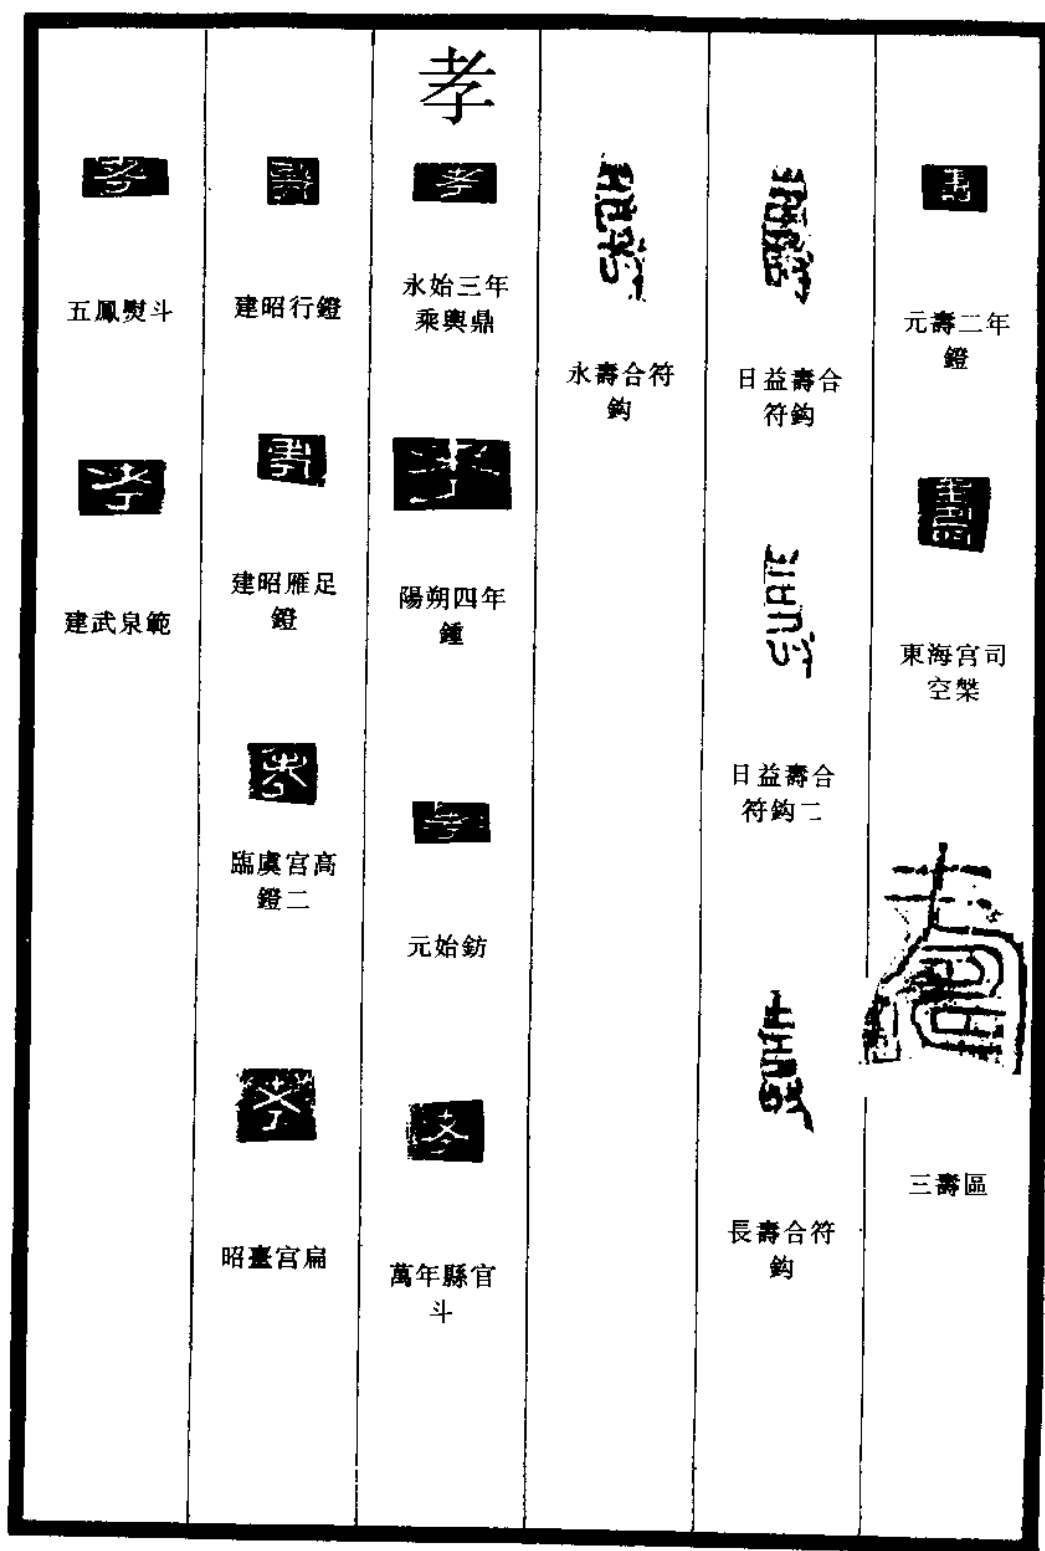 元壽二年
鐙
東海宫司
空槃
三壽區
日益壽合
符鈎
日益壽合
符鈎二
長壽合符
鈎
永壽合符
鈎
孝
永始三年
乘輿鼎
陽朔四年
鍾
元始鈁
萬年縣官
斗
建昭行鐙
建昭雁足
鐙
臨虞宫高
鐙二
昭臺宫扁
五鳳熨斗
建武泉範